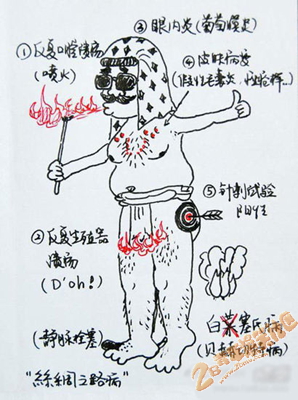 ③眼内炎(葡萄膜炎)
①反复口腔溃疡
(喷火)
④皮肤病变
(假性毛囊炎,性痤疮…)
⑤针刺试验
阳性
②反复生殖器
溃疡
(D'oh!)
(静脉栓塞)
白菜塞氏病
(贝赫切特病)
"絲綢之路病"